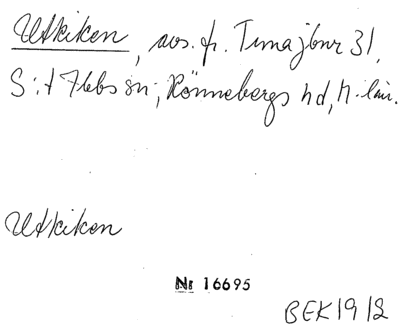 Utkiken, avs. fr. Timajbnr 31,
S:t Ibbs sn, Rönnebergs hd, M. län.
Utkiken
Nr 16695
BEK 1912